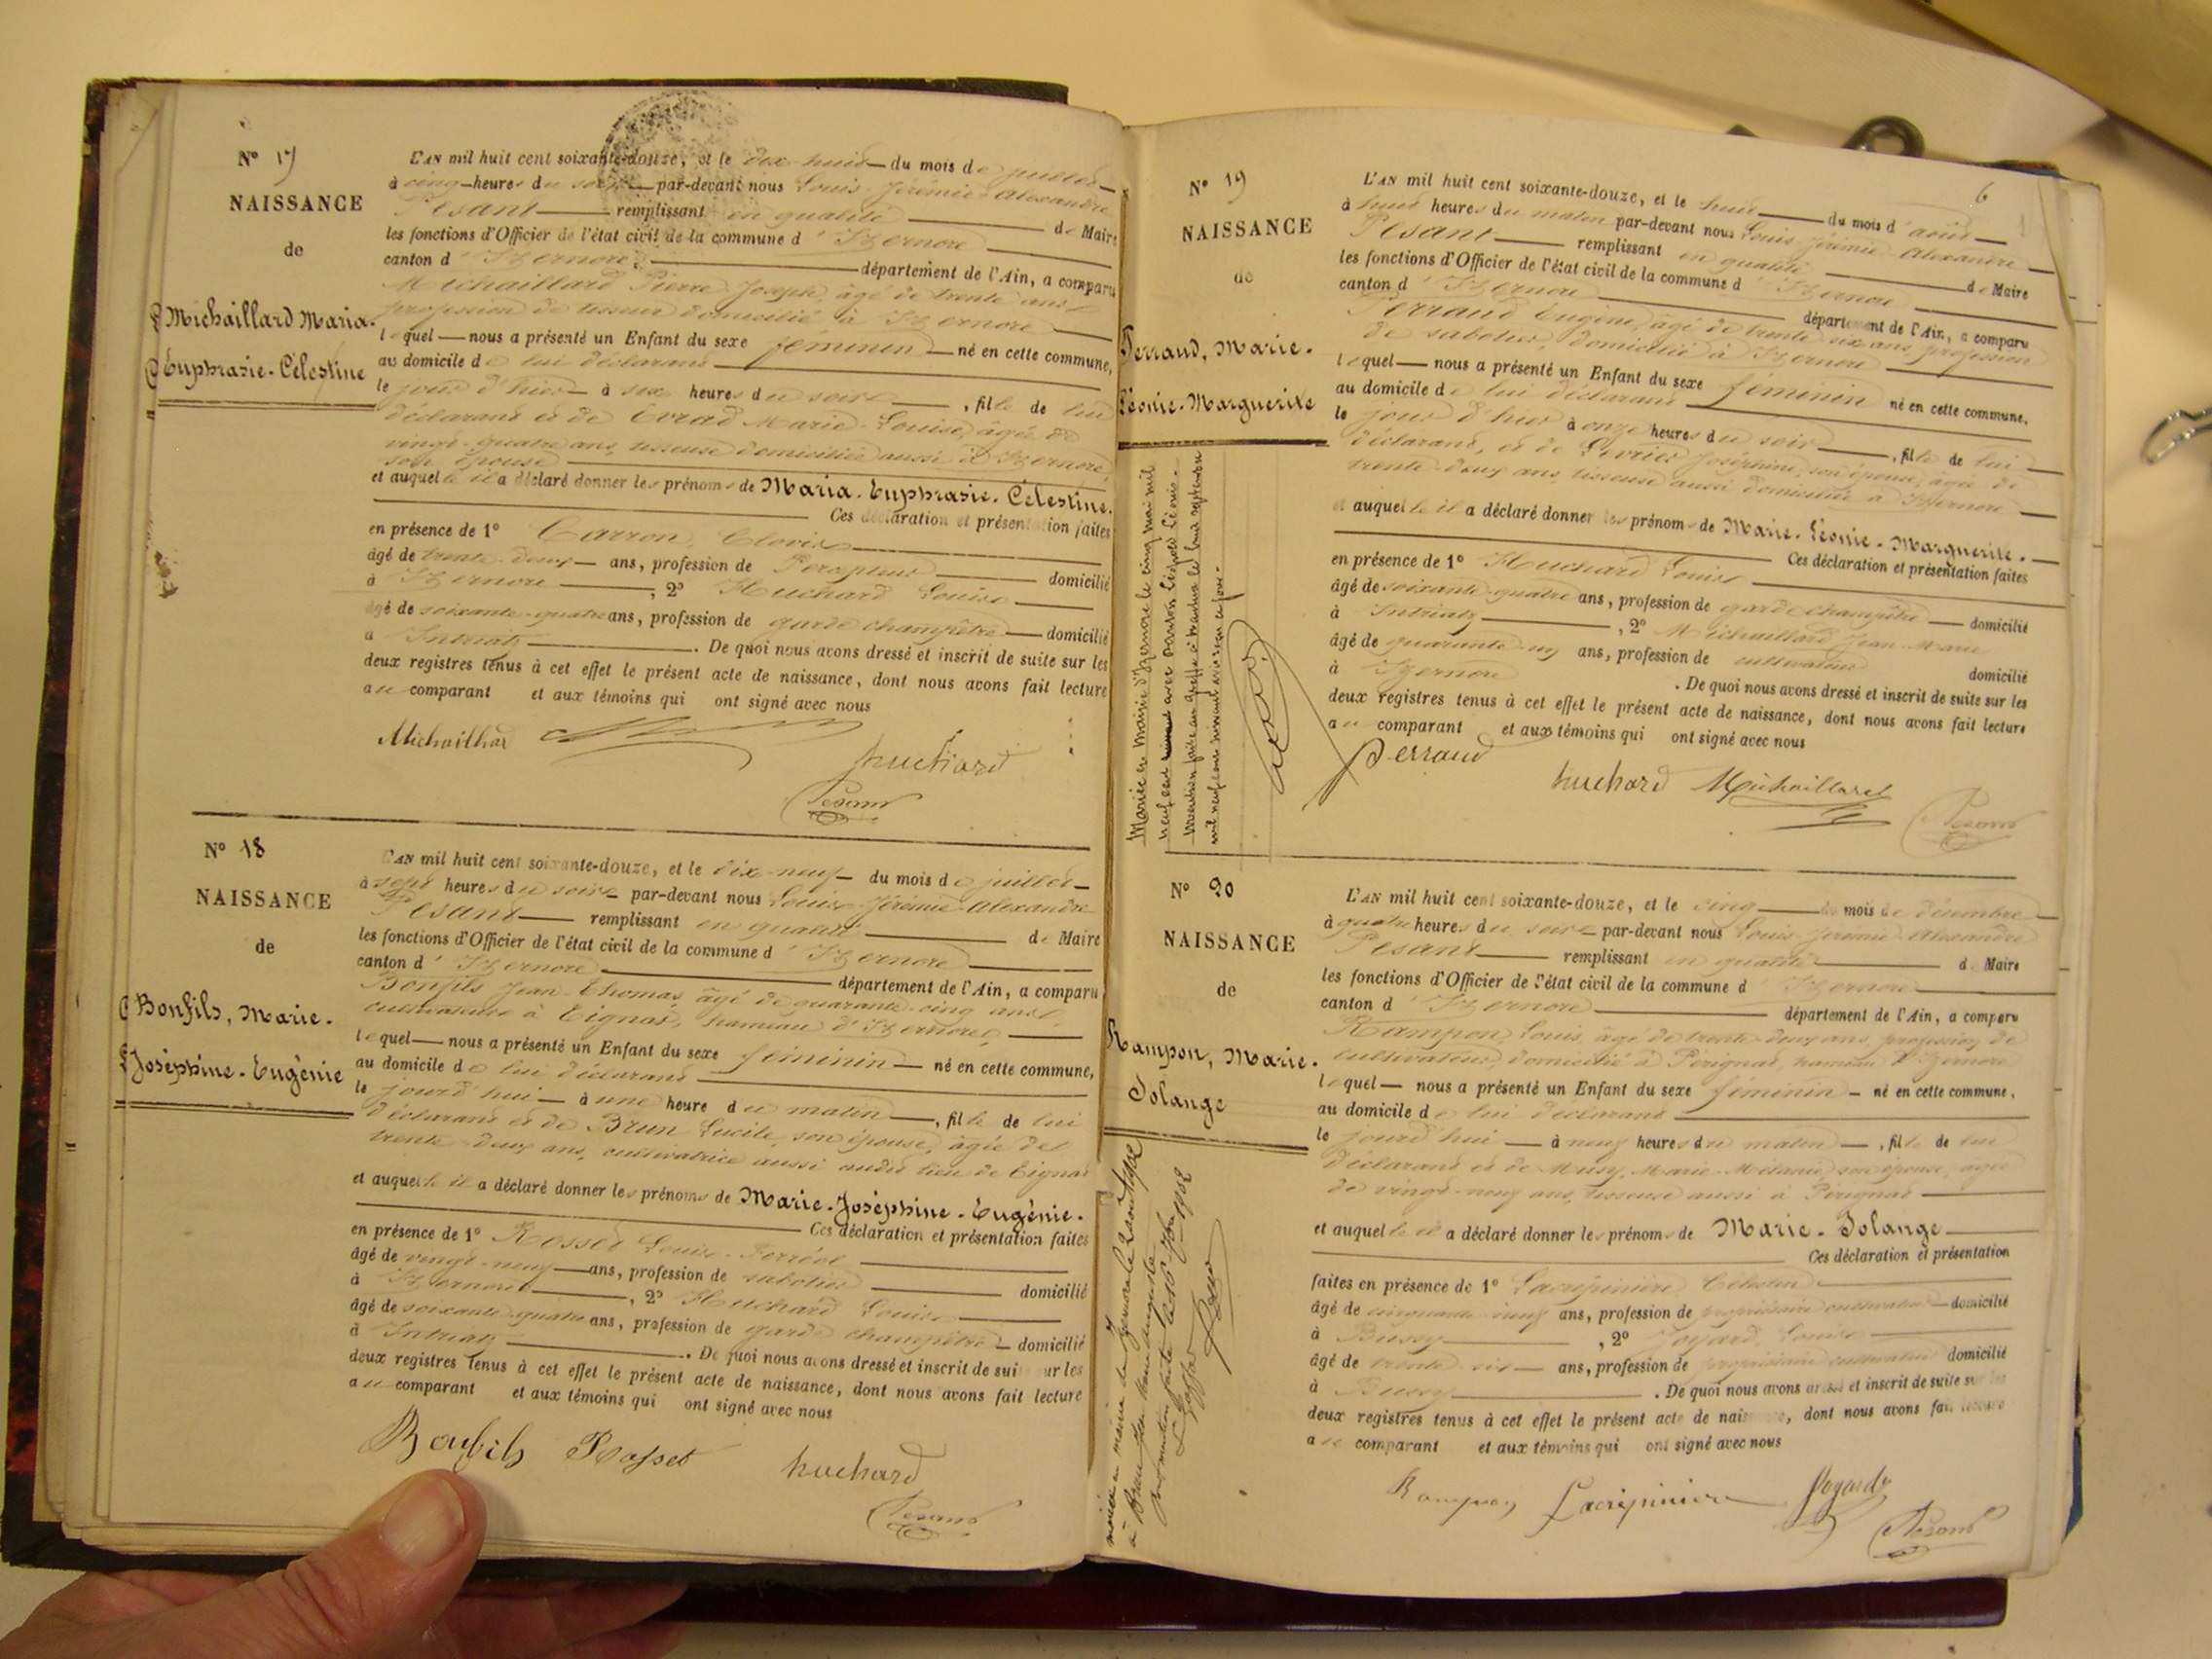 N° 17
NAISSANCE
de
Michaillard Maria.
Euphrasie-Célestine
L'AN mil huit cent soixante-douze, et le dix huit du mois de juillet
à cinq heures du soir par-devant nous Louis Jérémie Alexandre
Pesant remplissant en qualité de Maire
les fonctions d'Officier de l'état civil de la commune d'Izernore
canton d'Izernore département de l'Ain, a comparu
Michaillard Pierre Joseph, âgé de trente ans
profession de tisseur domicilié à Izernore
lequel nous a présenté un Enfant du sexe féminin né en cette commune,
au domicile de lui déclarant
le jour d'hier à six heures du soir, fille de lui
déclarant et de Evrad Marie Louise, âgée de
vingt-quatre ans, tisseuse domiciliée aussi à Izernore
son épouse
et auquel le il a déclaré donner les prénoms de Maria-Euphrasie-Célestine.
Ces déclaration et présentation faites
en présence de 1° Carron, Clovis
âgé de trente-deux ans, profession de Percepteur domicilié
à Izernore, 2° Huchard Louis
âgé de soixante-quatre ans, profession de garde champêtre domicilié
à Intriatz. De quoi nous avons dressé et inscrit de suite sur les
deux registres tenus à cet effet le présent acte de naissance, dont nous avons fait lecture
au comparant et aux témoins qui ont signé avec nous
Michaillard
huchard
Pesant
N° 18
NAISSANCE
de
Bonfils, Marie-
Joséphine-Eugénie
L'AN mil huit cent soixante-douze, et le dix-neuf du mois de juillet
à sept heures du soir par-devant nous Louis Jérémie Alexandre
Pesant remplissant en qualité de Maire
les fonctions d'Officier de l'état civil de la commune d'Izernore
canton d'Izernore département de l'Ain, a comparu
Bonfils Jean Thomas âgé de quarante-cinq ans
cultivateur à Tignat, hameau d'Izernore
lequel nous a présenté un Enfant du sexe féminin né en cette commune,
au domicile de lui déclarant
le jourd'hui à une heure du matin, fille de lui
déclarant et de Brun Lucile, son épouse, âgée de
trente-deux ans, cultivatrice aussi audit lieu de Tignat
et auquel le il a déclaré donner les prénoms de Marie-Joséphine-Eugénie.
Ces déclaration et présentation faites
en présence de 1° Rosset Louis
âgé de vingt-neuf ans, profession de sabotier domicilié
à Izernore, 2° Huchard Louis
âgé de soixante-quatre ans, profession de garde champêtre domicilié
à Intriatz. De quoi nous avons dressé et inscrit de suite sur les
deux registres tenus à cet effet le présent acte de naissance, dont nous avons fait lecture
au comparant et aux témoins qui ont signé avec nous
Bonfils Rosset huchard
Pesant
6
N° 19
NAISSANCE
de
Perraud, Marie-
Léonie-Marguerite
Mariée en mairie d'Izernore le cinq mai mil
neuf cent avec
mil neuf cent
L'AN mil huit cent soixante-douze, et le huit du mois d'août
à huit heures du matin par-devant nous Louis Jérémie Alexandre
Pesant remplissant en qualité de Maire
les fonctions d'Officier de l'état civil de la commune d'Izernore
canton d'Izernore département de l'Ain, a comparu
Perraud Eugène, âgé de trente six ans, profession
de sabotier, domicilié à Izernore
lequel nous a présenté un Enfant du sexe féminin né en cette commune.
au domicile de lui déclarant
le jour d'hier à onze heures du soir, fille de lui
déclarant, et de Joséphine, son épouse, âgée de
trente-deux ans, tisseuse aussi domiciliée à Izernore
et auquel le il a déclaré donner les prénoms de Marie-Léonie-Marguerite.
Ces déclaration et présentation faites
en présence de 1° Huchard Louis
âgé de soixante-quatre ans, profession de garde champêtre domicilié
à Intriatz, 2° Michaillard Jean Marie
âgé de quarante ans, profession de cultivateur domicilié
à Izernore. De quoi nous avons dressé et inscrit de suite sur les
deux registres tenus à cet effet le présent acte de naissance, dont nous avons fait lecture
au comparant et aux témoins qui ont signé avec nous
Perraud
huchard Michaillard
Pesant
N° 20
NAISSANCE
de
Rampon, Marie-
Solange
L'AN mil huit cent soixante-douze, et le cinq du mois de décembre
à quatre heures du soir par-devant nous Louis Jérémie Alexandre
Pesant remplissant en qualité de Maire
les fonctions d'Officier de l'état civil de la commune d'Izernore
canton d'Izernore département de l'Ain, a comparu
Rampon Louis, âgé de trente-deux ans, profession de
cultivateur, domicilié à Pérignat, hameau d'Izernore
lequel nous a présenté un Enfant du sexe féminin né en cette commune,
au domicile de lui déclarant
le jourd'hui à neuf heures du matin, fille de lui
déclarant et de Musy, Marie Mélanie, son épouse, âgée
de vingt-neuf ans, tisseuse aussi à Pérignat
et auquel le il a déclaré donner les prénoms de Marie-Solange
Ces déclaration et présentation
faites en présence de 1° Lacrépinière Célestin
âgé de cinquante neuf ans, profession de propriétaire cultivateur domicilié
à Bussy, 2° Goyard, Louis
âgé de trente six ans, profession de propriétaire cultivateur domicilié
à Bussy. De quoi nous avons dressé et inscrit de suite sur les
deux registres tenus à cet effet le présent acte de naissance, dont nous avons fait lecture
au comparant et aux témoins qui ont signé avec nous
Rampon Lacrépinière
Pesant